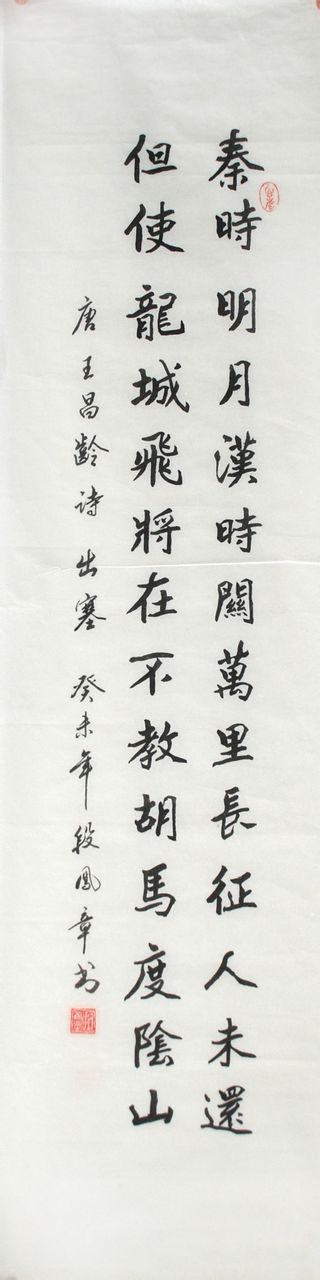 秦時明月漢時關萬里長征人未還
但使龍城飛將在不教胡馬度陰山
唐王昌齡詩出塞 癸未年段鳳章书